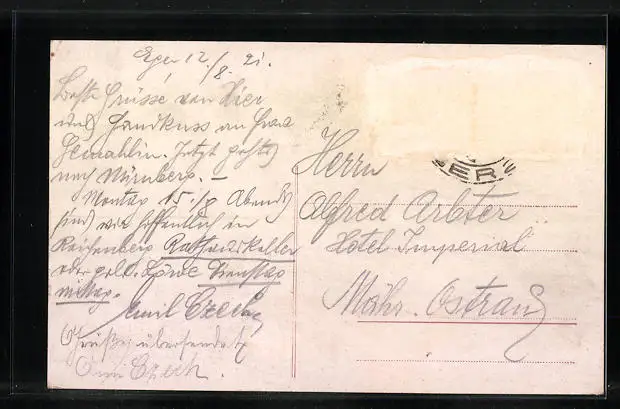 Eger 12./8. 21.
Beste Grüsse von Hier
und Handkuss an Frau
Gemahlin. Jetzt gehts
nach Nürnberg. —
Montag 15./8 Abends
sind wir hoffentlich in
Reichenberg Rathauskeller
oder gold. Löwe Dienstag
mittag.
Emil Czech
Grüße übersendet
Czech.
EGER
Herrn
Alfred Arbter
Hotel Imperial
Mähr. Ostrau